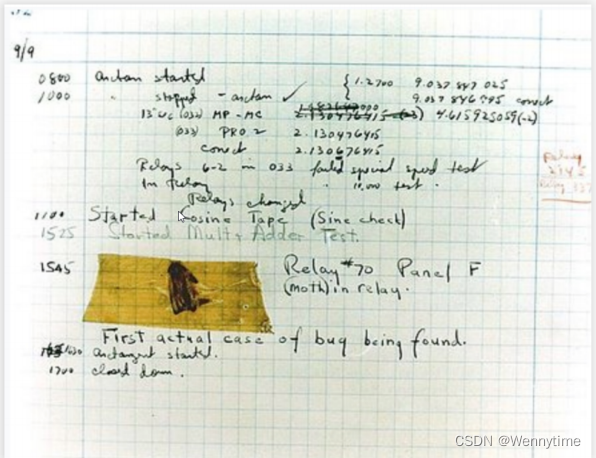 9/9
0800 antan started
1000 " stopped - antan ✓ { 1.2700 9.037 847 025
9.037 846 995 correct
13"uc (032) MP-MC 2.130476415 (-3) 4.615925059(-2)
(033) PRO 2 2.130476415
correct 2.130676415
Relays 6-2 in 033 failed special speed test
in relay " 10.000 test.
Relays changed
Relay
2145
Relay 337
1100 Started Cosine Tape (Sine check)
1525 Started Mult+Adder Test.
1545 Relay #70 Panel F
(moth) in relay.
First actual case of bug being found.
1630 antangent started.
1700 closed down.
CSDN @Wennytime